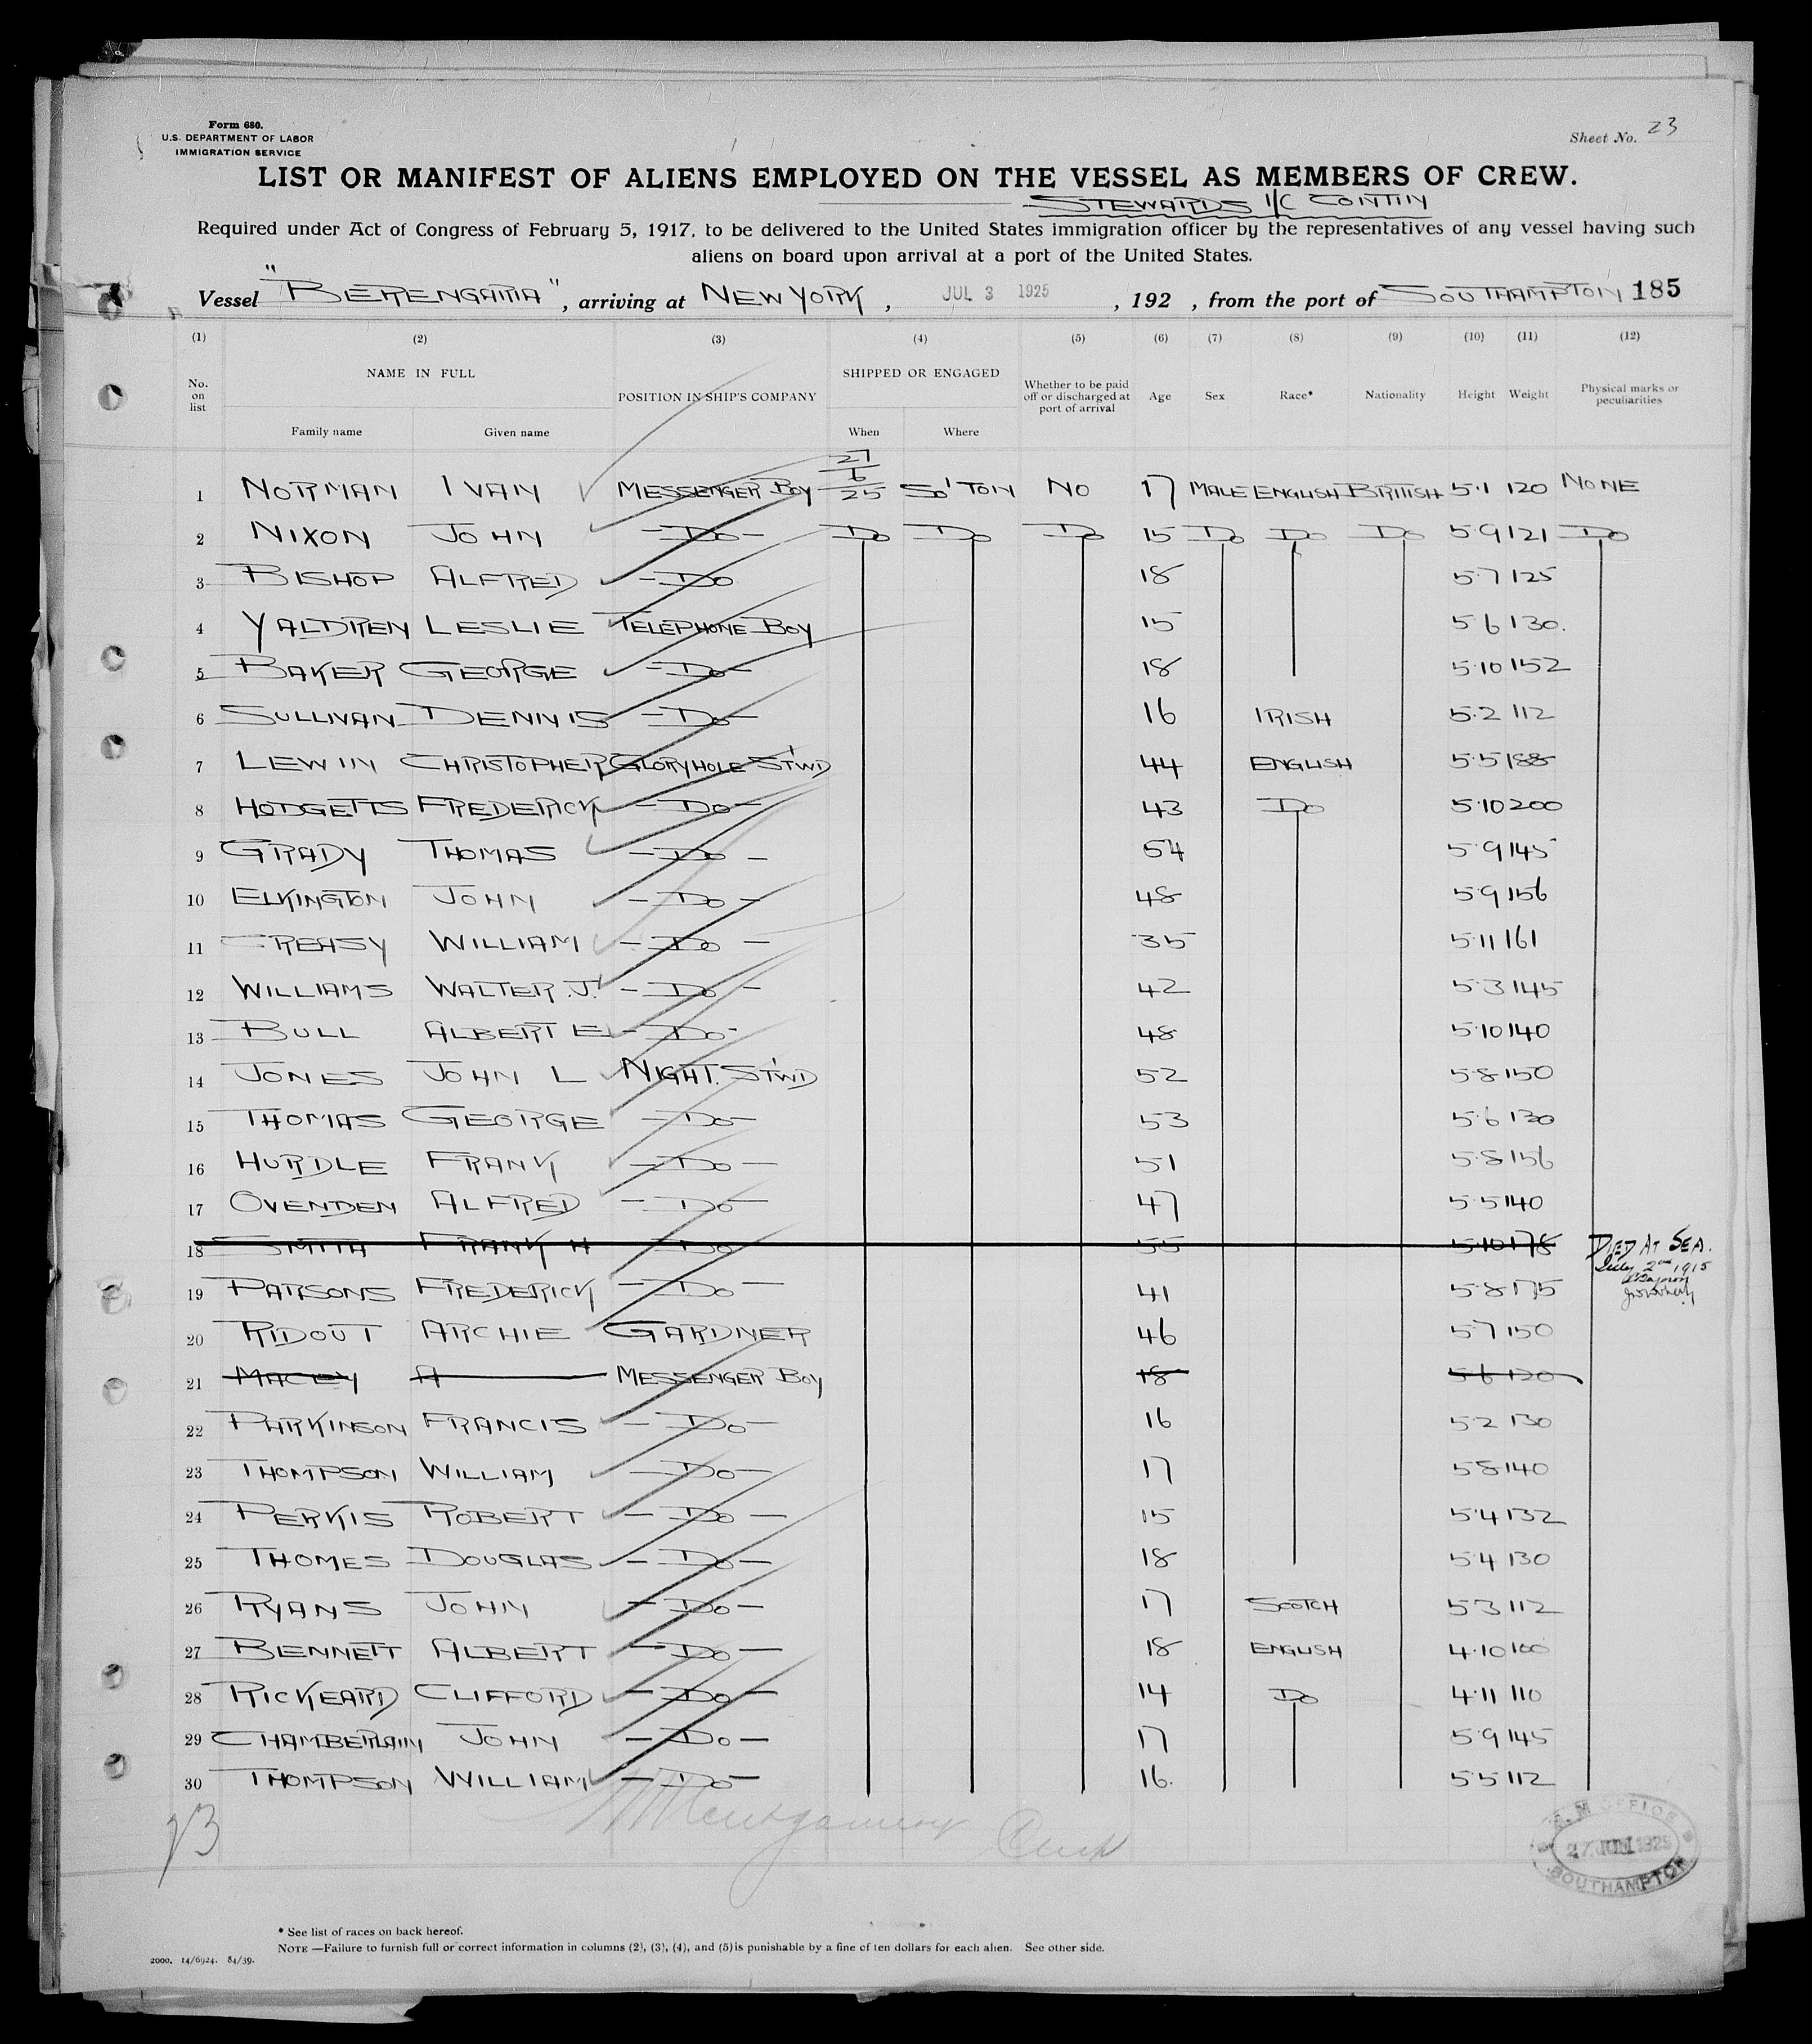 Form 680.
U.S. DEPARTMENT OF LABOR
IMMIGRATION SERVICE
Sheet No. 23
LIST OR MANIFEST OF ALIENS EMPLOYED ON THE VESSEL AS MEMBERS OF CREW.
STEWARDS 1/C CONTIN
Required under Act of Congress of February 5, 1917, to be delivered to the United States immigration officer by the representatives of any vessel having such
aliens on board upon arrival at a port of the United States.
Vessel "BERENGARIA", arriving at NEW YORK, JUL 3 1925, 192 , from the port of SOUTHAMPTON 185
(1) (2) (3) (4) (5) (6) (7) (8) (9) (10) (11) (12)
No. on list NAME IN FULL POSITION IN SHIP'S COMPANY SHIPPED OR ENGAGED Whether to be paid off or discharged at port of arrival Age Sex Race* Nationality Height Weight Physical marks or peculiarities
Family name Given name When Where
1 NORMAN IVAN MESSENGER BOY 27/6/25 SO'TON NO 17 MALE ENGLISH BRITISH 5.1 120 NONE
2 NIXON JOHN -DO- DO DO DO 15 DO DO DO 5.9 121 DO
3 BISHOP ALFRED -DO 18 5.7 125
4 YALDREN LESLIE TELEPHONE BOY 15 5.6 130.
5 BAKER GEORGE -DO- 18 5.10 152
6 SULLIVAN DENNIS -DO- 16 IRISH 5.2 112
7 LEWIN CHRISTOPHER GLORYHOLE ST'WD 44 ENGLISH 5.5 188
8 HODGETTS FREDERICK -DO- 43 DO 5.10 200
9 GRADY THOMAS -DO- 54 5.9 145
10 ELKINGTON JOHN -DO- 48 5.9 156
11 WILLIAM -DO- 35 5.11 161
12 WILLIAMS WALTER.J. -DO- 42 5.3 145
13 BULL ALBERT E -DO- 48 5.10 140
14 JONES JOHN L NIGHT. ST'WD 52 5.8 150
15 THOMAS GEORGE -DO- 53 5.6 130
16 HURDLE FRANK -DO- 51 5.8 156
17 OVENDEN ALFRED -DO- 47 5.5 140
18 SMITH FRANK H DO 55 5.10 178 DIED AT SEA.
July 2nd 1915
19 PARSONS FREDERICK -DO- 41 5.8 175
20 RIDOUT ARCHIE GARDNER 46 5.7 150
21 MACEY A MESSENGER BOY 18 5.6 120
22 PARKINSON FRANCIS -DO- 16 5.2 130
23 THOMPSON WILLIAM -DO- 17 5.8 140
24 PERKIS ROBERT -DO- 15 5.4 132
25 THOMES DOUGLAS -DO- 18 5.4 130
26 RYANS JOHN -DO- 17 SCOTCH 5.3 112
27 BENNETT ALBERT -DO- 18 ENGLISH 4.10 100
28 RICKEARD CLIFFORD -DO- 14 DO 4.11 110
29 CHAMBERLAIN JOHN -DO- 17 5.9 145
30 THOMPSON WILLIAM -DO- 16. 5.5 112
23 Montgomery
M.M OFFICE
27 JUN 1925
SOUTHAMPTON
* See list of races on back hereof.
NOTE —Failure to furnish full or correct information in columns (2), (3), (4), and (5) is punishable by a fine of ten dollars for each alien. See other side.
2000. 14/6924. 84/39.